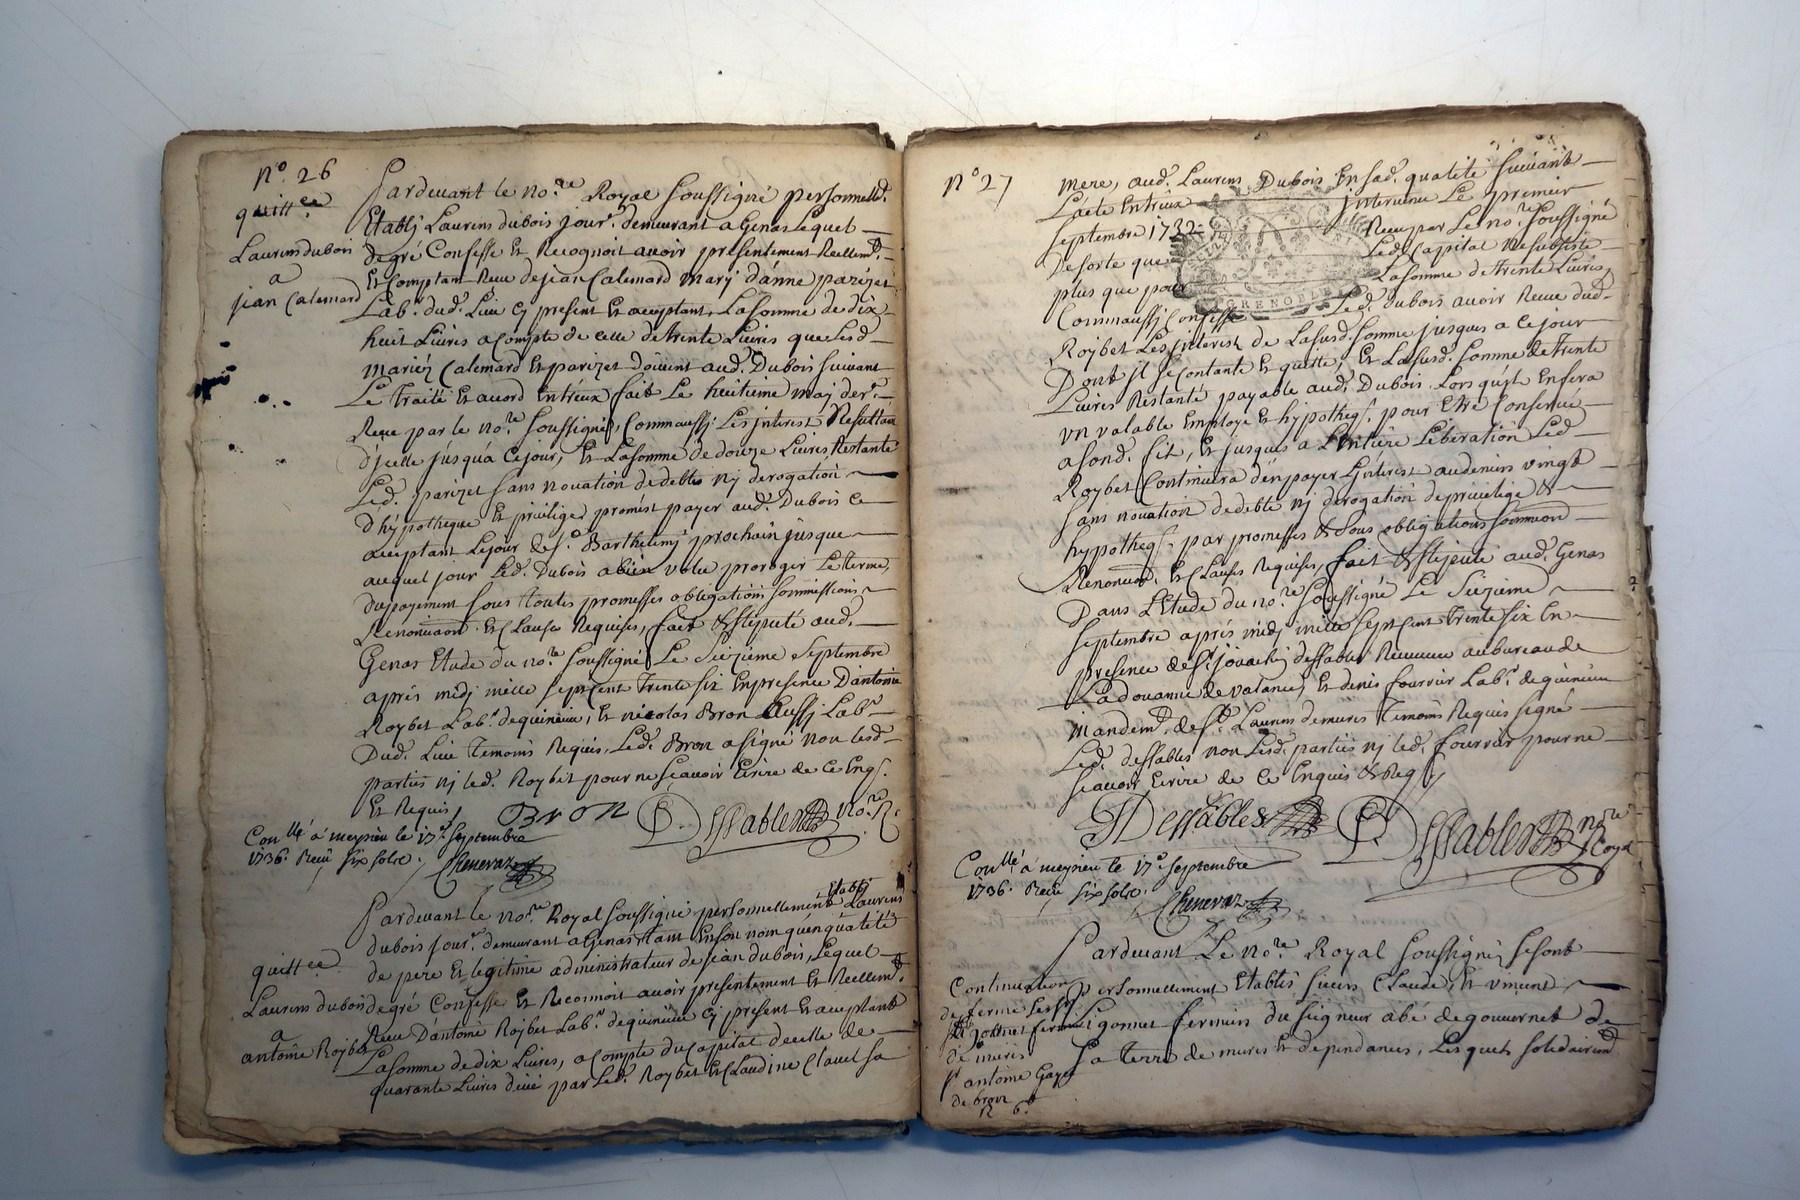 N.º 26
quittce
Laurens dubois
a
jean Calemard
Pardevant le no.re Royal soussigné personnellt.
Etablj Laurens dubois jour.r demeurant a Genas Lequel
de gré Confesse et Recognoit avoir presentement Reellemt.
Et Comptant Reçue de jean Calemard marij d'anne parizet
Lab.r dud. Lieu cy present Et aceptant, La somme de dix
huit Livres a Compte de celle de trente Livres que lesd.
mariéz Calemard Et parizet doivent aud. Dubois suivant
Le Traité Et acord Entréux fait Le huitieme maj der.r
Reçue par le no.re soussigné, Comm aussj Les jnterest Resultan
d'jcelle jusqu'a Ce jour, Et La somme de douze Livres Restante
Led. parizet sans novation de debtes nj derogation
d'hypotheque Et privilige promést payer aud. Dubois Ce
aceptant Le jour de s.t Barthelemj prochain jusque
auquel jour Led. Dubois a bien volu proroger Le terme
du payement sous toutes promesses obligations sommissions
Renonciaon. Et Clauses Requises, fait & stiputé aud.
Genas Etude du no.re soussigné Le Sizieme Septembre
aprés midj mille sept Cent trente six En presence D'antoine
Roybet Lab.r de quinieu, Et nicolas Bron aussj Lab.r
Dud. Lieu temoins Requis, Led. Bron a signé non lesd.
partiés nj led. Roybet pour ne scavoir Ecrire de Ce Enq.s
Et Requis
Bron Dessables no.re R.
Con.llé a meysieu le 17.e Septembre
1736. Reçu six sols.
Chenevaz
quittce
Laurens dubois
a
antoine Roybet
Pardevant le no.re Royal soussigné personnellement Etablj Laurens
dubois jour.r demeurant a Genas tant En son nom qu'en qualité
de pere Et legitime administrateur de jean dubois, Lequel
de gré Confesse Et Reconnoit avoir presentement Et Reellemt.
Reçue D'antoine Roybet Lab.r de quinieu cy present Et aceptant
La somme de dix Livres, a Compte du Capital de celle de
quarante Livres deüe par Led. Roybet Et Claudine Clavel sa
N.º 27
mere, aud. Laurens Dubois En sad. qualité suivant
L'acte Entreux jntervenu Le premier
septembre 1732 Reçu par Le no.re soussigné
De sorte que Led. Capital ne subsiste
plus que pour La somme de trente Livres
Comm aussj Confesse Led. Dubois avoir Reçue dud.
GRENOBLE
Roybet Les jnterest de La susd. somme jusques a Ce jour
Dont jl se contante Et quitte, Et La susd. somme de trente
Livres Restante payable aud. Dubois Lors qu'jl En fera
vn valable Employe Et hypotheq., pour Etre Conservé
a sond. fils, Et jusques a L'entiere Liberation Led.
Roybet Continuera d'en payer L'jnterest au denier vingt
sans novation de debte nj derogation de privilige &
hypotheq. par promesses & sous obligations sommission
Renonciaon. Et Clauses Requises, fait & stiputé aud. Genas
Dans L'Etude du no.re soussigné Le Sizieme
Septembre aprés midj mille sept Cent trente six En
presence de s.r joüachin dessables Receveur au bureau de
La doüanne de valance, Et denis fourrier Lab.r de quinieu
mandemt. de s.t Laurens demures temoins Requis signé
Led. dessables non Lesd. parties nj led. fourrier pour ne
scavoir Ecrire de Ce Enquis & Req.s
Dessables Dessables no.re Royal
Con.llé a meysieu le 17.e Septembre
1736. Reçu six sols.
Chenevaz
Continuation
de ferme Les srs
gonnet fermiers
de mures
s.r antoine Gayet
de bron
R 6.s
Pardevant Le no.re Royal soussigné se sont
personnellement Etablis sieurs Claude, Et vincent
Ligonnet fermiers du seigneur abé de gouvernet de
sa terre de mures Et dependances, Lesquels solidairemt.